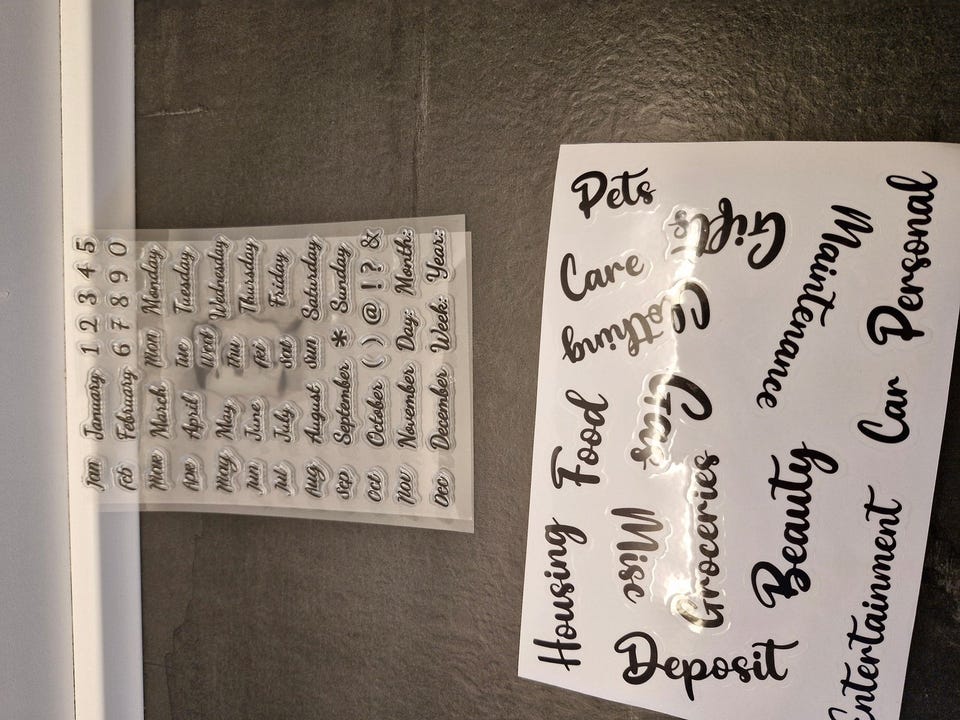 Jan January 1 2 3 4 5
Feb February 6 7 8 9 0
Mar March Mon Monday
Apr April Tue Tuesday
May May Wed Wednesday
Jun June Thu Thursday
Jul July Fri Friday
Sat
Aug August Sun Saturday
Sep September * Sunday
Oct October ( ) @ ! ? &
Nov November Day: Month:
Dec December Week: Year:
Housing Food Clothing Care Pets
Deposit Misc Gas
Groceries Gifts
Beauty Maintenance
Entertainment Car Personal